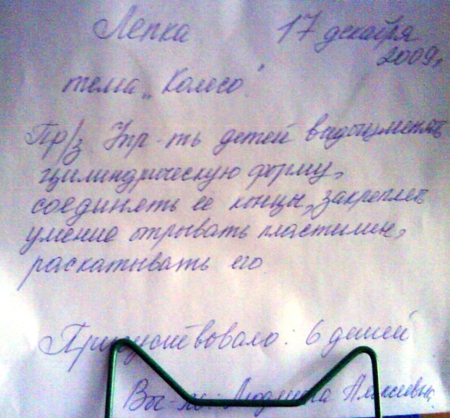 Лепка 17 декабря
2009г.
тема „Колесо".
Пр/з Упр-ть детей видоизменять
цилиндрическую форму,
соединять её концы, закреплять
умение отрывать пластилин,
раскатывать его
Присутствовало: 6 детей
Вос-ль: Людмила Алексеевна